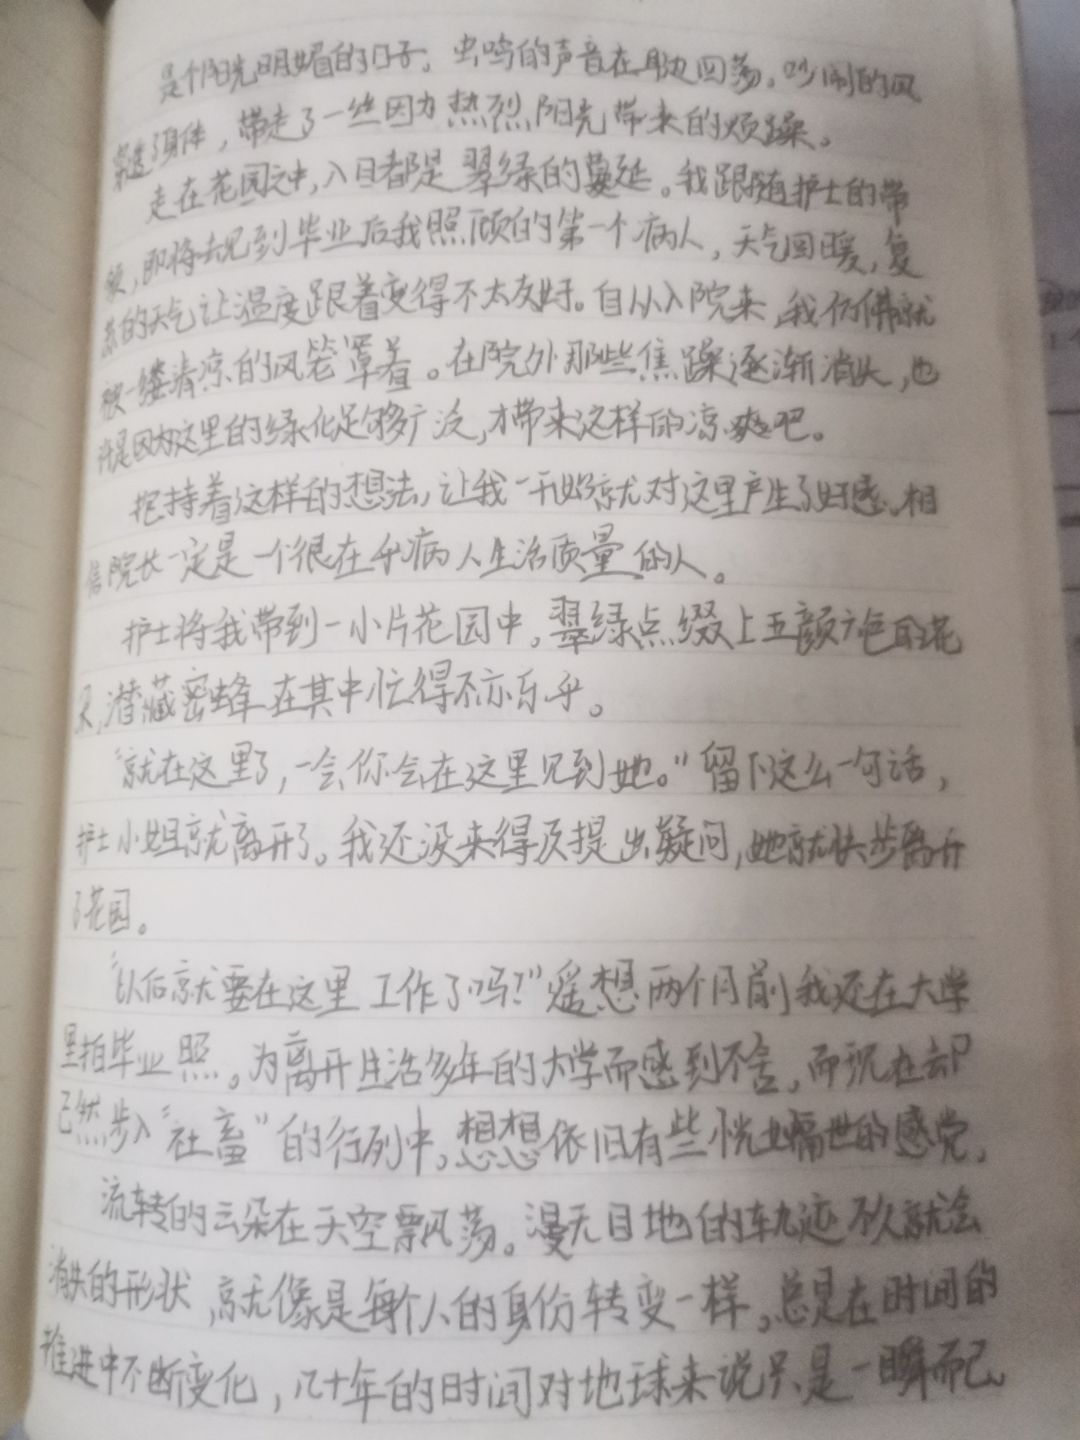 是个阳光明媚的日子，虫鸣的声音在耳边回荡。吵闹的风
穿透了身体，带走了一丝因为热烈阳光带来的烦躁。
走在花园之中，入目都是翠绿的蔓延。我跟随护士的带
领，即将去见到毕业后我照顾的第一个病人，天气回暖，复
苏的天气让温度跟着变得不太友好。自从入院来，我仿佛就
被一缕清凉的风笼罩着。在院外那些焦躁逐渐消失，也
许是因为这里的绿化足够广泛，才带来这样的凉爽吧。
抱持着这样的想法，让我一开始就对这里产生了好感。相
信院长一定是一个很在乎病人生活质量的人。
护士将我带到一小片花园中。翠绿点缀上五颜六色的花
朵，潜藏密蜂在其中忙得不亦乐乎。
“就在这里了，一会你会在这里见到她。”留下这么一句话，
护士小姐就离开了。我还没来得及提出疑问，她就快步离开
了花园。
“以后就要在这里工作了吗？”遥想两个月前我还在大学
里拍毕业照。为离开生活多年的大学而感到不舍，而现在却
已然步入“社畜”的行列中。想想依旧有些恍如隔世的感觉。
流转的云朵在天空飘荡。漫无目地的轨迹不久就会
消失的形状，就像是每个人的身份转变一样。总是在时间的
推进中不断变化，几十年的时间对地球来说只是一瞬而已。